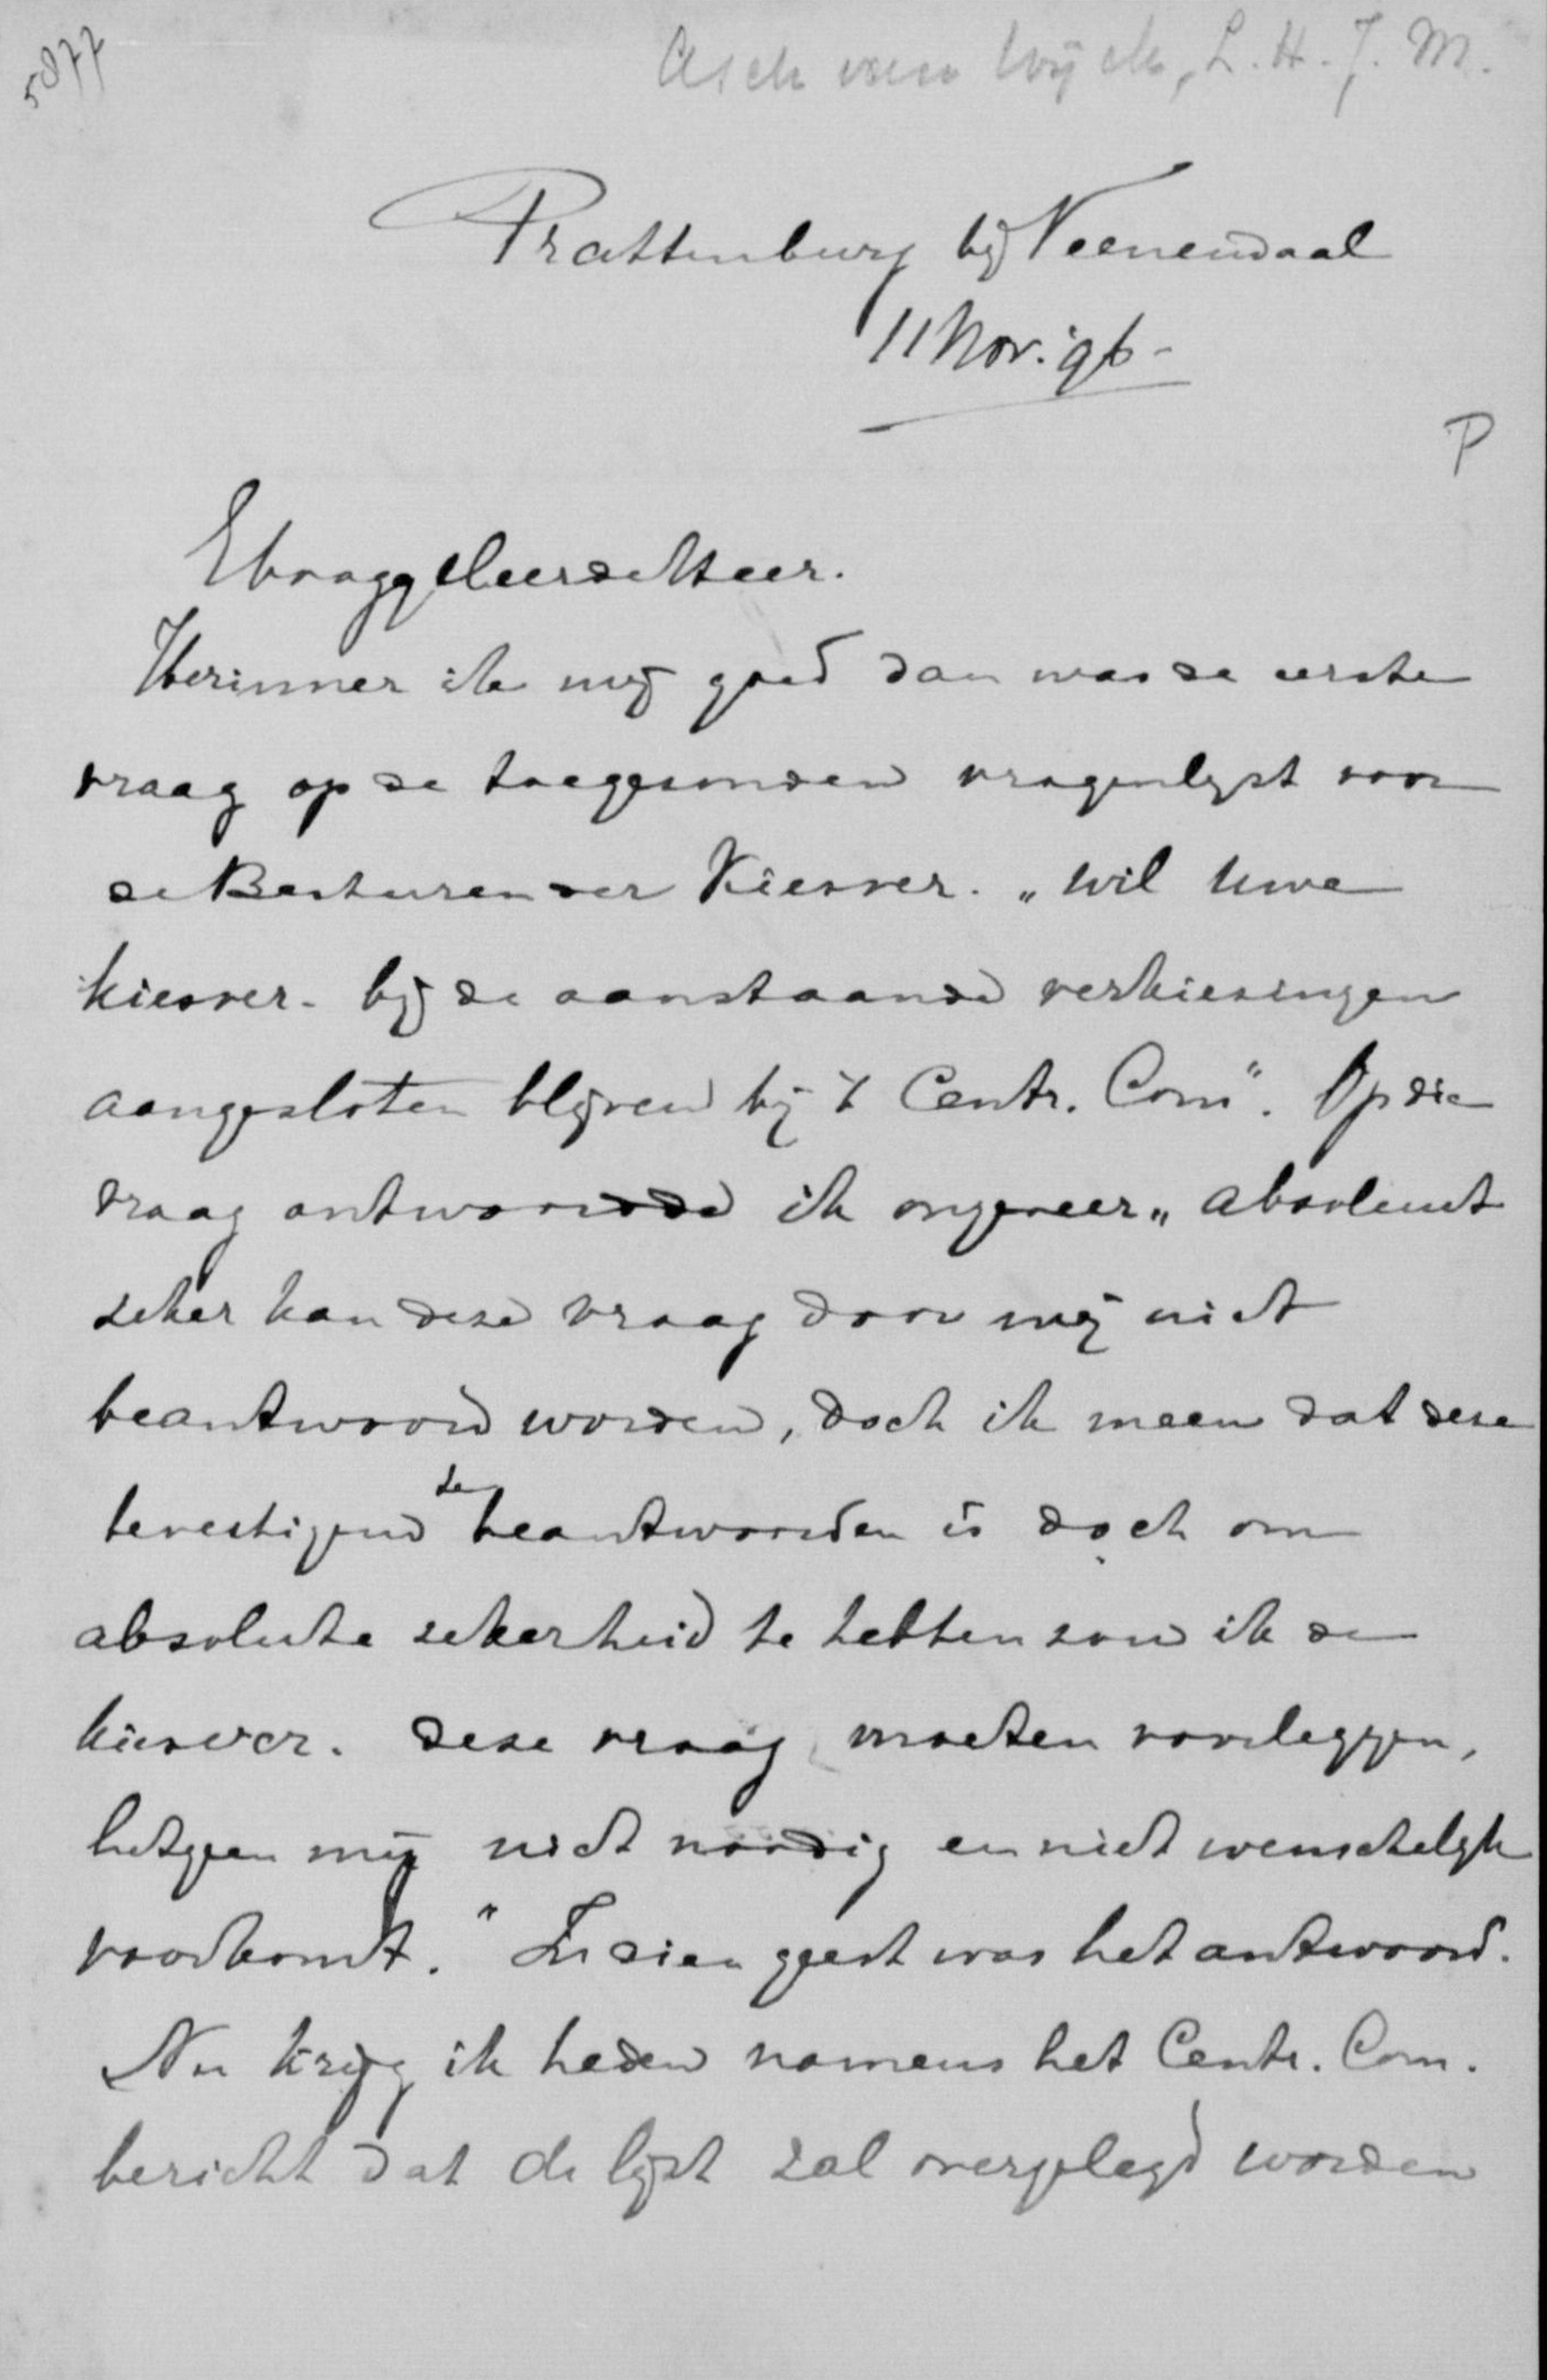 5877
Asch van Wijck, L.H.J.M.
Prattenburg bij Veenendaal
11 Nov. '96 -
P
Hooggeleerde Heer.
Herinner ik mij goed dan was de eerste
vraag op de toegezonden vragenlijst voor
de Besturen der Kiesver. „wil Uwe
kiesver. bij de aanstaande verkiezingen
aangesloten blijven bij 't Centr. Com". Op die
vraag antwoordde ik ongeveer „absoluut
zeker kan deze vraag door mij niet
beantwoord worden, doch ik meen dat deze
bevestigend te beantwoorden is doch om
absolute zekerheid te hebben zou ik de
kiesver. deze vraag moeten voorleggen,
hetgeen mij niet noodig en niet wenschelijk
voorkomt." In dien geest was het antwoord.
Nu krijg ik heden namens het Centr. Com.
bericht dat de lijst zal overgelegd worden